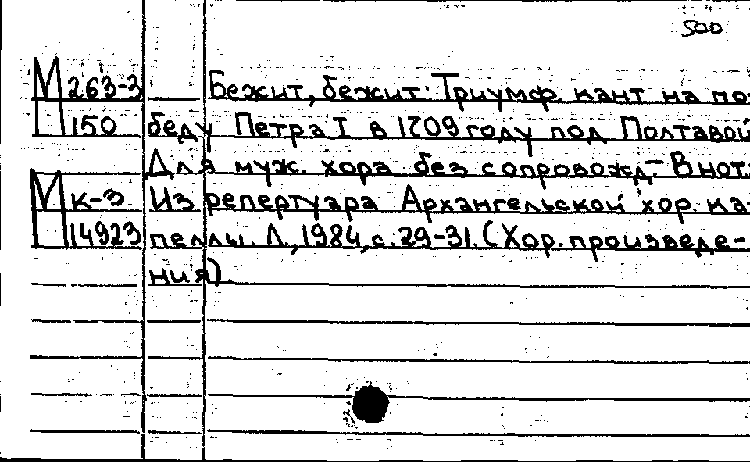 500
М 263-3 Бежит, бежит: Триумф. кант на по-
150 беду Петра I в 1709 году под Полтавой
Для муж. хора без сопровожд.- В нот.:
М к-3 Из репертуара Архангельской хор. ка-
14923 пеллы. Л., 1984, с. 29-31. (Хор. произведе-
ния).